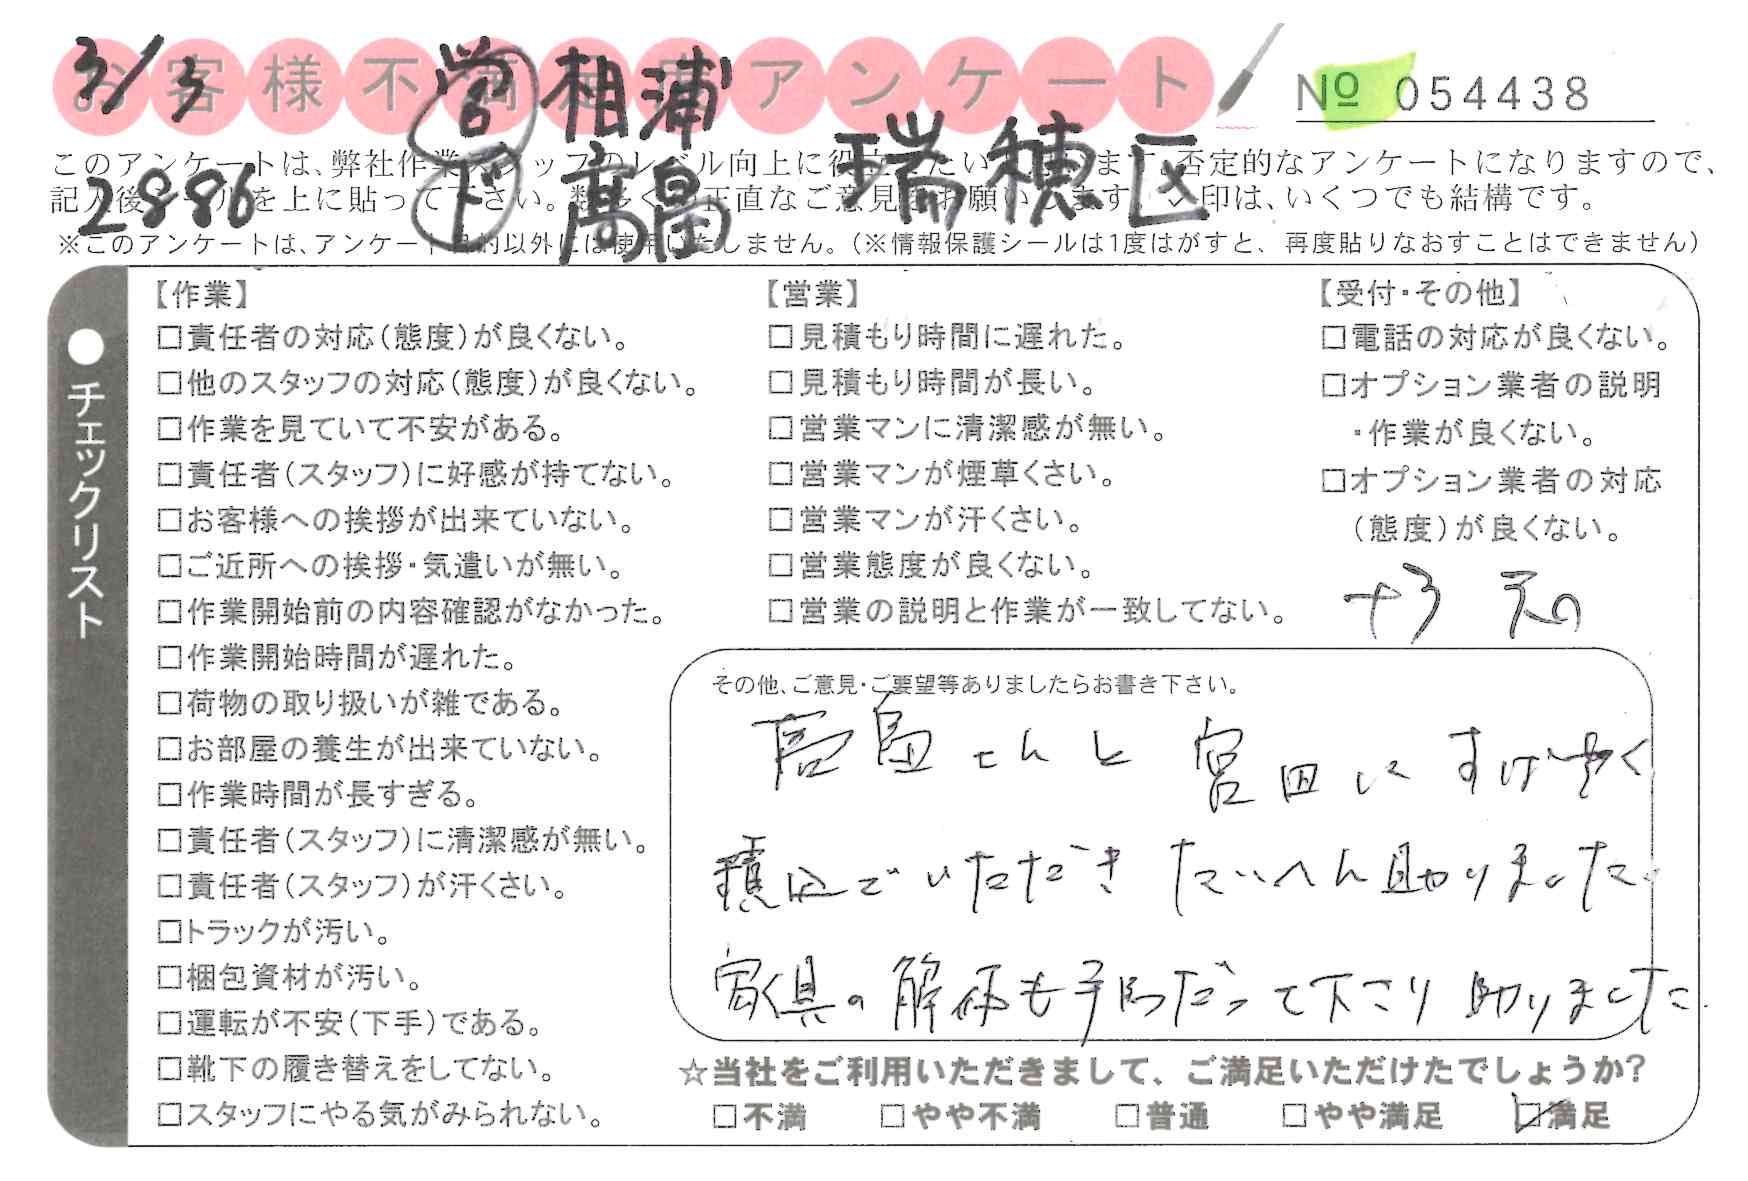 お客様不満足度アンケート
3/3 営 相浦
No 054438
2886 下 髙畠 瑞穂区
このアンケートは、弊社作業スタッフのレベル向上に役立てたいと思います。否定的なアンケートになりますので、
記入後シールを上に貼って下さい。数多くの正直なご意見をお願いします。✓印は、いくつでも結構です。
※このアンケートは、アンケート目的以外には使用いたしません。(※情報保護シールは1度はがすと、再度貼りなおすことはできません)
●チェックリスト
【作業】
□責任者の対応(態度)が良くない。
□他のスタッフの対応(態度)が良くない。
□作業を見ていて不安がある。
□責任者(スタッフ)に好感が持てない。
□お客様への挨拶が出来ていない。
□ご近所への挨拶・気遣いが無い。
□作業開始前の内容確認がなかった。
□作業開始時間が遅れた。
□荷物の取り扱いが雑である。
□お部屋の養生が出来ていない。
□作業時間が長すぎる。
□責任者(スタッフ)に清潔感が無い。
□責任者(スタッフ)が汗くさい。
□トラックが汚い。
□梱包資材が汚い。
□運転が不安(下手)である。
□靴下の履き替えをしてない。
□スタッフにやる気がみられない。
【営業】
□見積もり時間に遅れた。
□見積もり時間が長い。
□営業マンに清潔感が無い。
□営業マンが煙草くさい。
□営業マンが汗くさい。
□営業態度が良くない。
□営業の説明と作業が一致してない。
【受付・その他】
□電話の対応が良くない。
□オプション業者の説明
・作業が良くない。
□オプション業者の対応
(態度)が良くない。
その他、ご意見・ご要望等ありましたらお書き下さい。
高畠さんと宮田に すばやく
積込でいただき たいへん助りました。
家具の解体も手つだって下さり 助りました.
☆当社をご利用いただきまして、ご満足いただけたでしょうか?
□不満 □やや不満 □普通 □やや満足 ☑満足